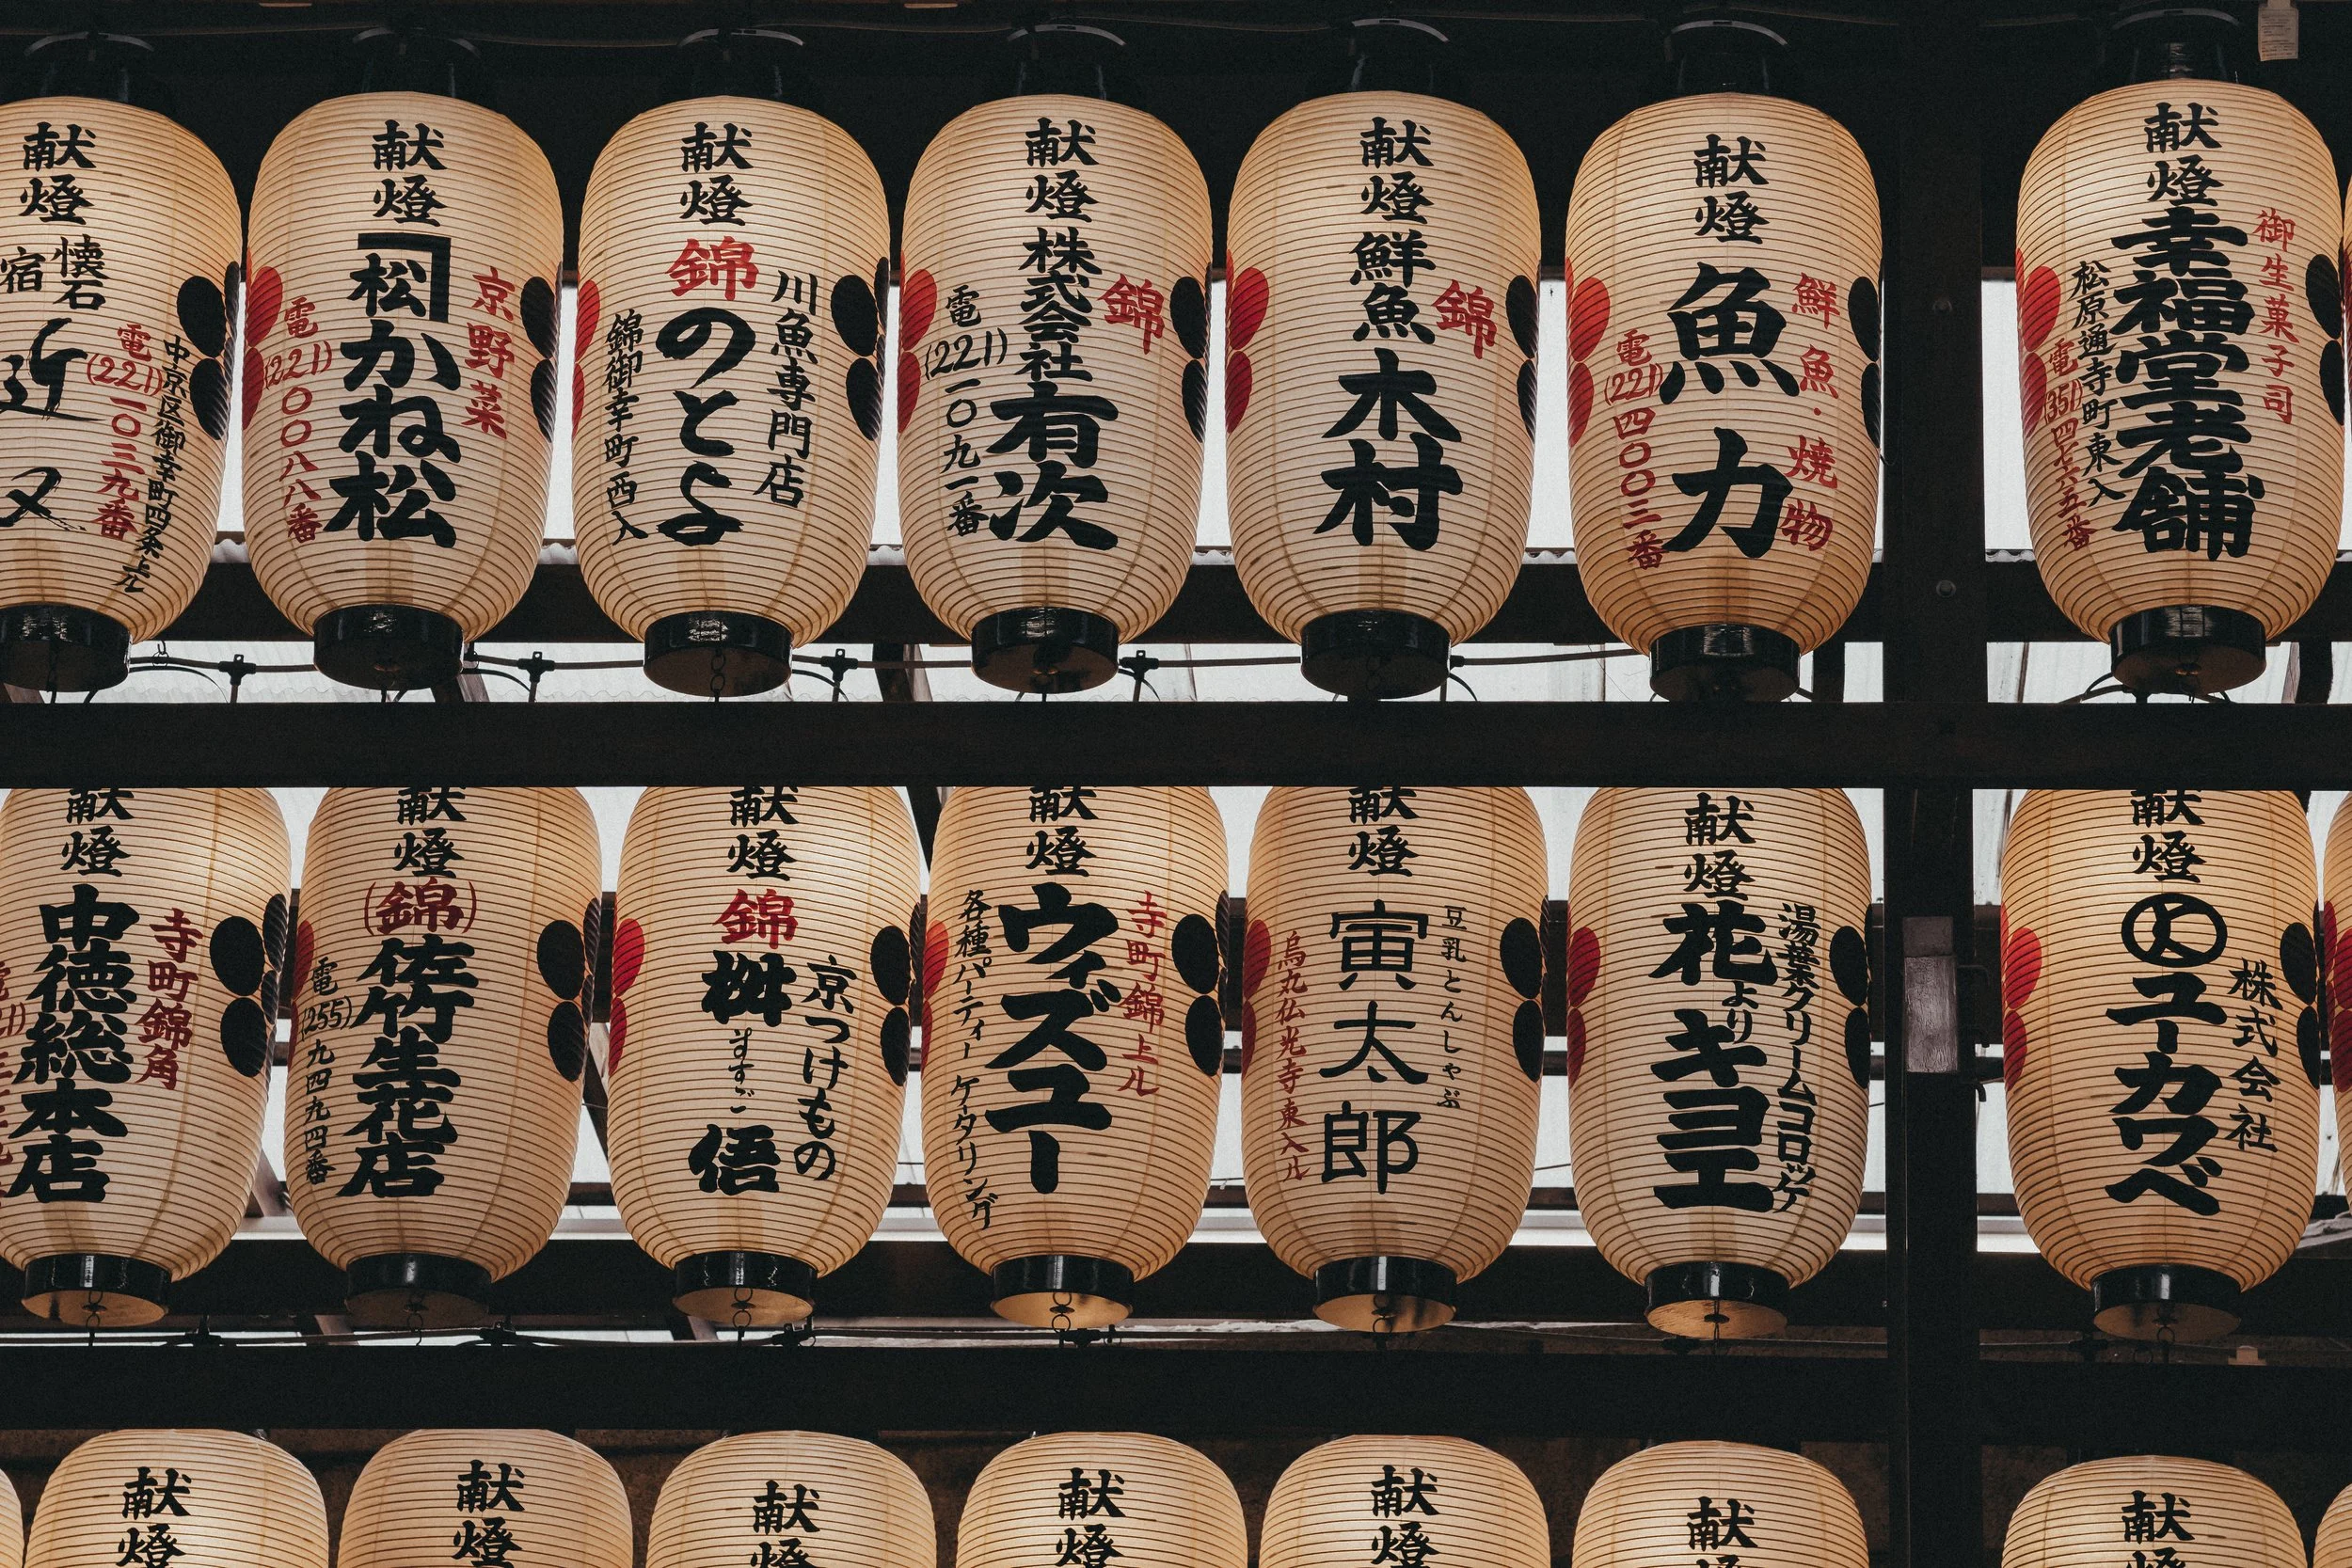 献燈
懐石
宿
近又
中京区御幸町四条上ル
電(221)一〇三九番
献燈
京野菜
松
かね松
電(221)〇〇八八番
献燈
錦
川魚専門店
のとよ
錦御幸町西入
献燈
錦
株式会社有次
電(221)一〇九一番
献燈
錦
鮮魚木村
献燈
鮮魚・焼物
魚力
電(221)四〇〇三番
献燈
御生菓子司
幸福堂老舗
松原通寺町東入
電(351)四七六五番
献燈
寺町錦角
中徳総本店
献燈
(錦)
佐竹生花店
電(255)九四九四番
献燈
錦
京つけもの
桝悟
ますご
献燈
寺町錦上ル
ウィズユー
各種パーティー ケータリング
献燈
豆乳とんしゃぶ
寅太郎
烏丸仏光寺東入ル
献燈
湯葉クリームコロッケ
花よりキヨエ
献燈
株式会社
ユーカワベ
献燈
献燈
献燈
献燈
献燈
献燈
献燈